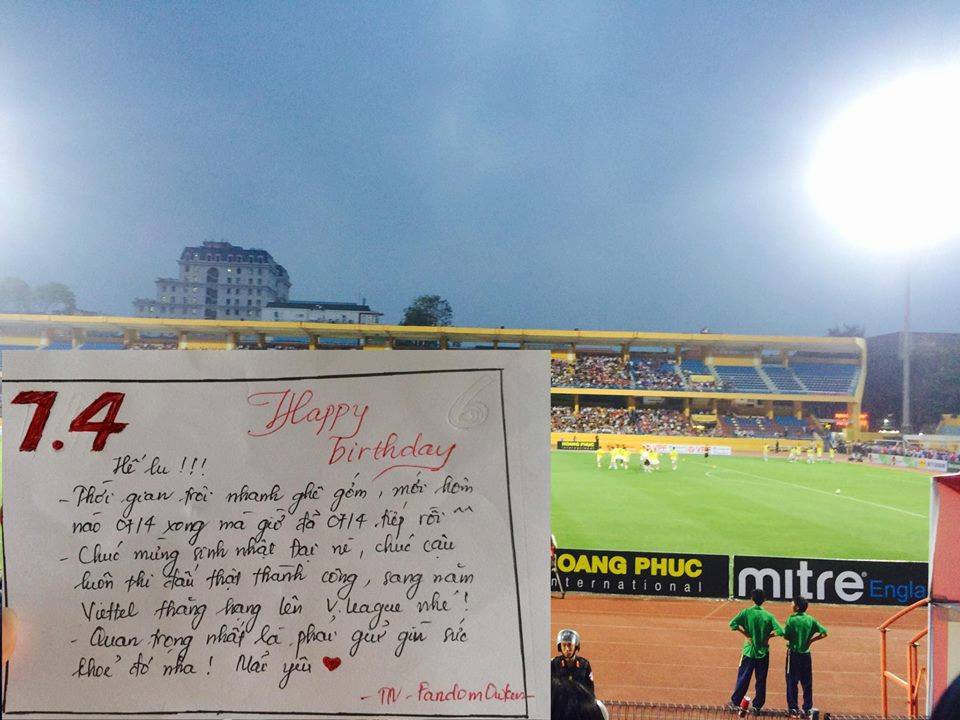 7.4
Happy
birthday
Hế lu !!!
- Thời gian trôi nhanh ghê gớm, mới hôm
nào 07/4 xong mà giờ đã 07/4 tiếp rồi ^^
- Chúc mừng sinh nhật Đại nè, chúc cậu
luôn thi đấu thật thành công, sang năm
Viettel thăng hạng lên V.league nhé!
- Quan trọng nhất là phải giữ gìn sức
khoẻ đó nha! Mãi yêu ❤
- TN - Fandom
HOANG PHUC
OANG PHUC
International
mitre Engla